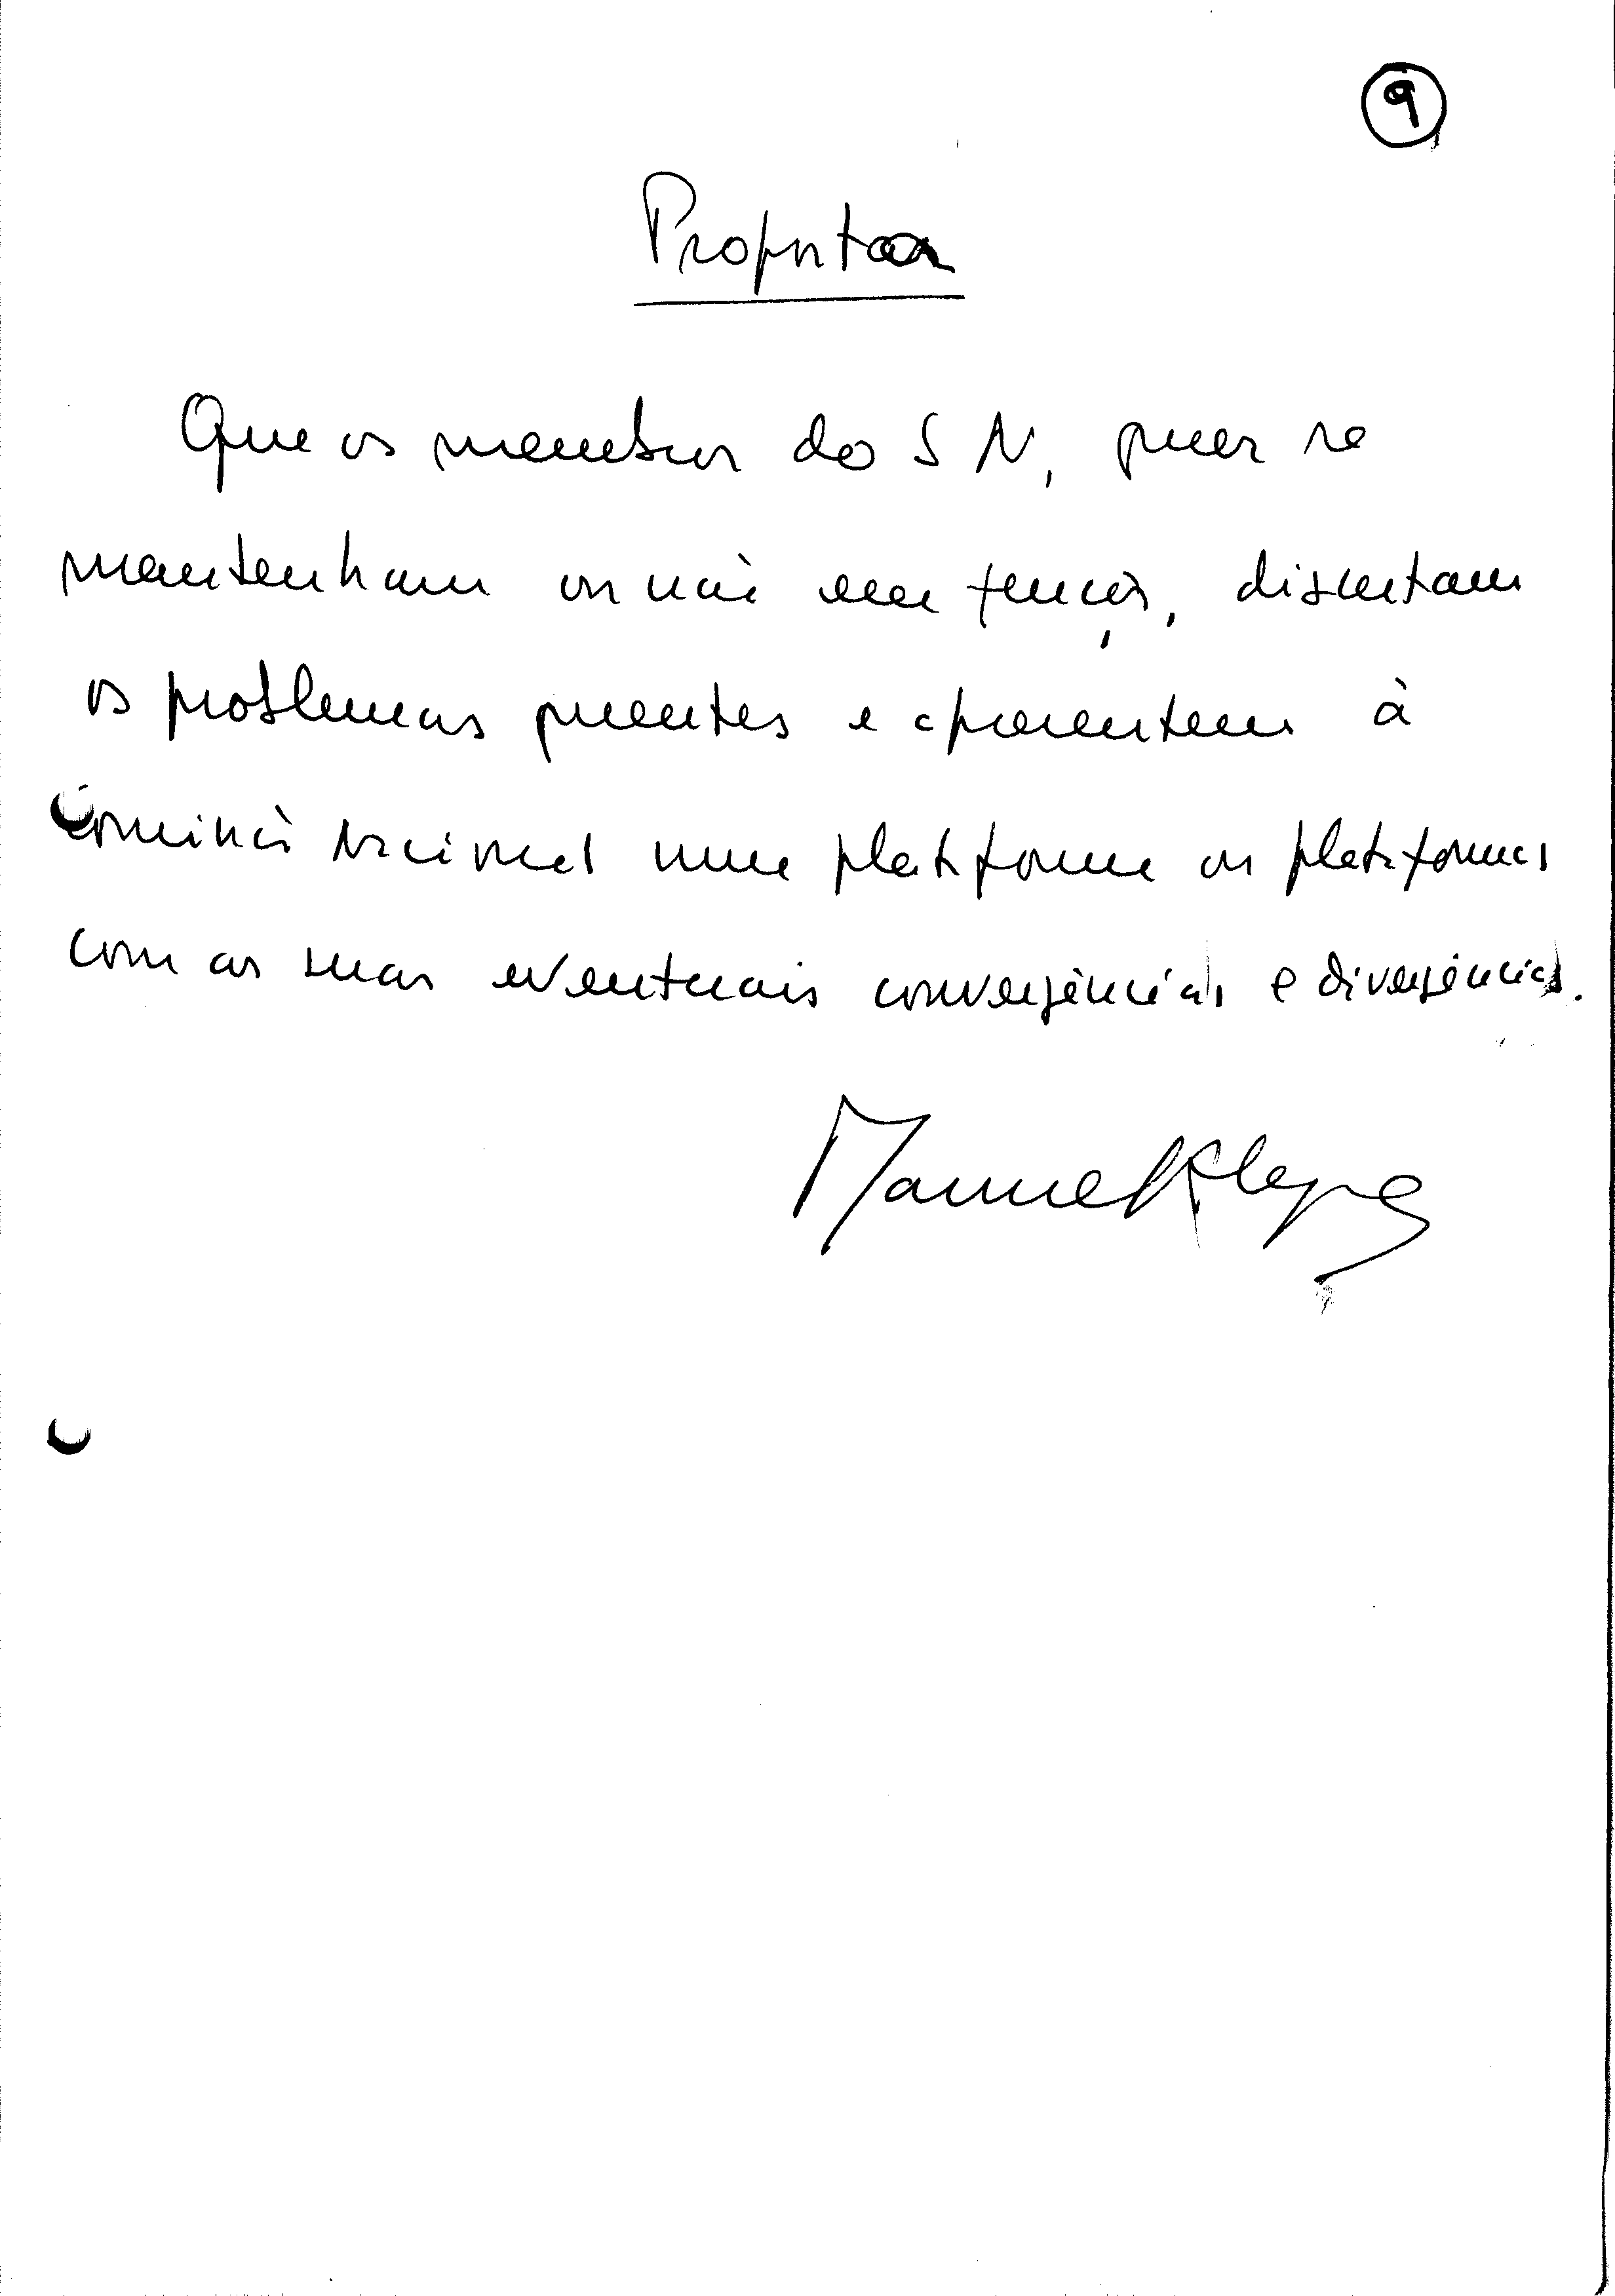 9
Proposta
Que os membros do SN, quer se
mantenham ou não em funções, discutam
os problemas presentes e apresentem à
Comissão Nacional uma plataforma ou plataformas
com as suas eventuais convergências e divergências.
Manuel Alegre